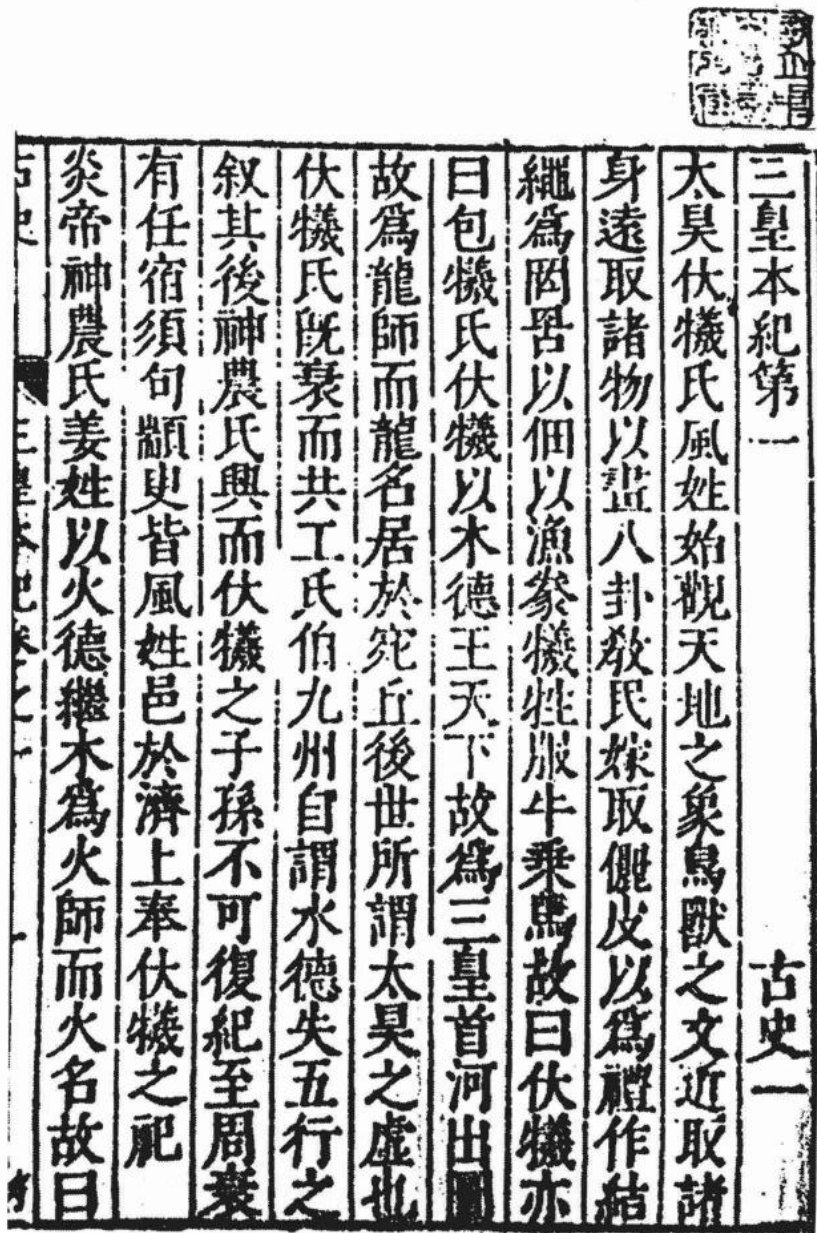 三皇本紀第一　古史一
太昊伏犧氏風姓始觀天地之象鳥獸之文近取諸
身遠取諸物以畫八卦教民嫁取儷皮以爲禮作結
繩爲罔罟以佃以漁豢犧牲服牛乗馬故曰伏犧亦
曰包犧氏伏犧以木德王天下故爲三皇首河出圖
故爲龍師而龍名居於宛丘後世所謂太昊之虛也
伏犧氏旣衰而共工氏伯九州自謂水德失五行之
叙其後神農氏興而伏犧之子孫不可復紀至周衰
有任宿須句顓臾皆風姓邑於濟上奉伏犧之祀
炎帝神農氏姜姓以火德繼木爲火師而火名故曰
古史　三皇本紀卷之一